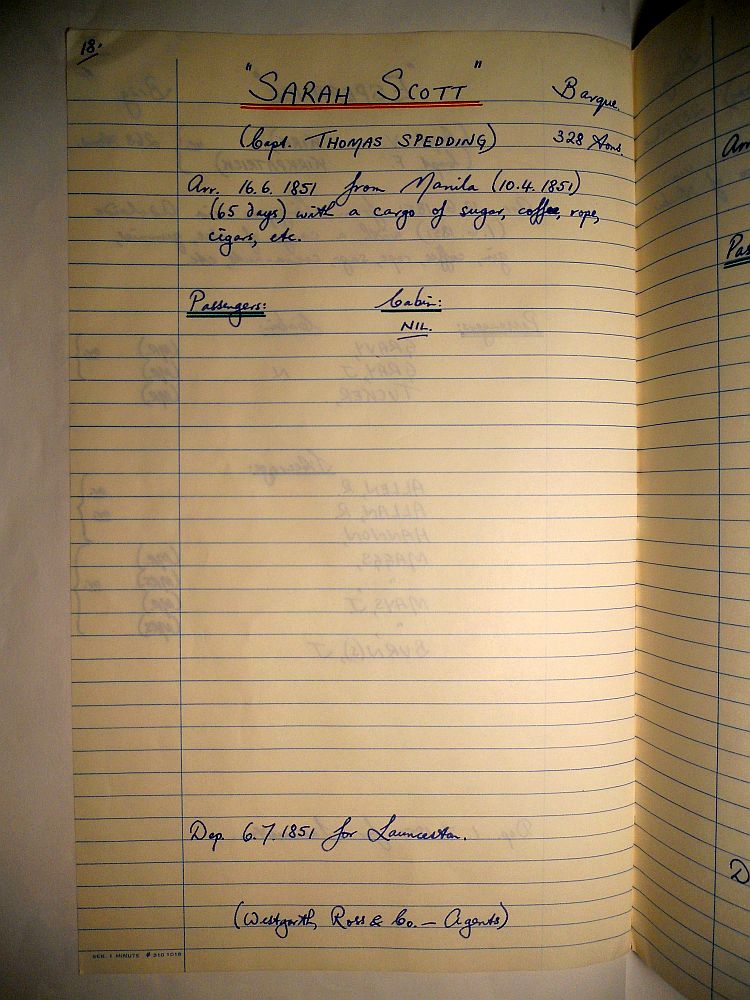 18.
"SARAH SCOTT" Barque.
(Capt. THOMAS SPEDDING) 328 tons.
Arr. 16.6.1851 from Manila (10.4.1851)
(65 days) with a cargo of sugar, coffee, rope,
cigars, etc.
Passengers: Cabin:
NIL.
Dep. 6.7.1851 for Launceston.
(Westgarth, Ross & Co. — Agents)
GEN. 1 MINUTE # 310 1018